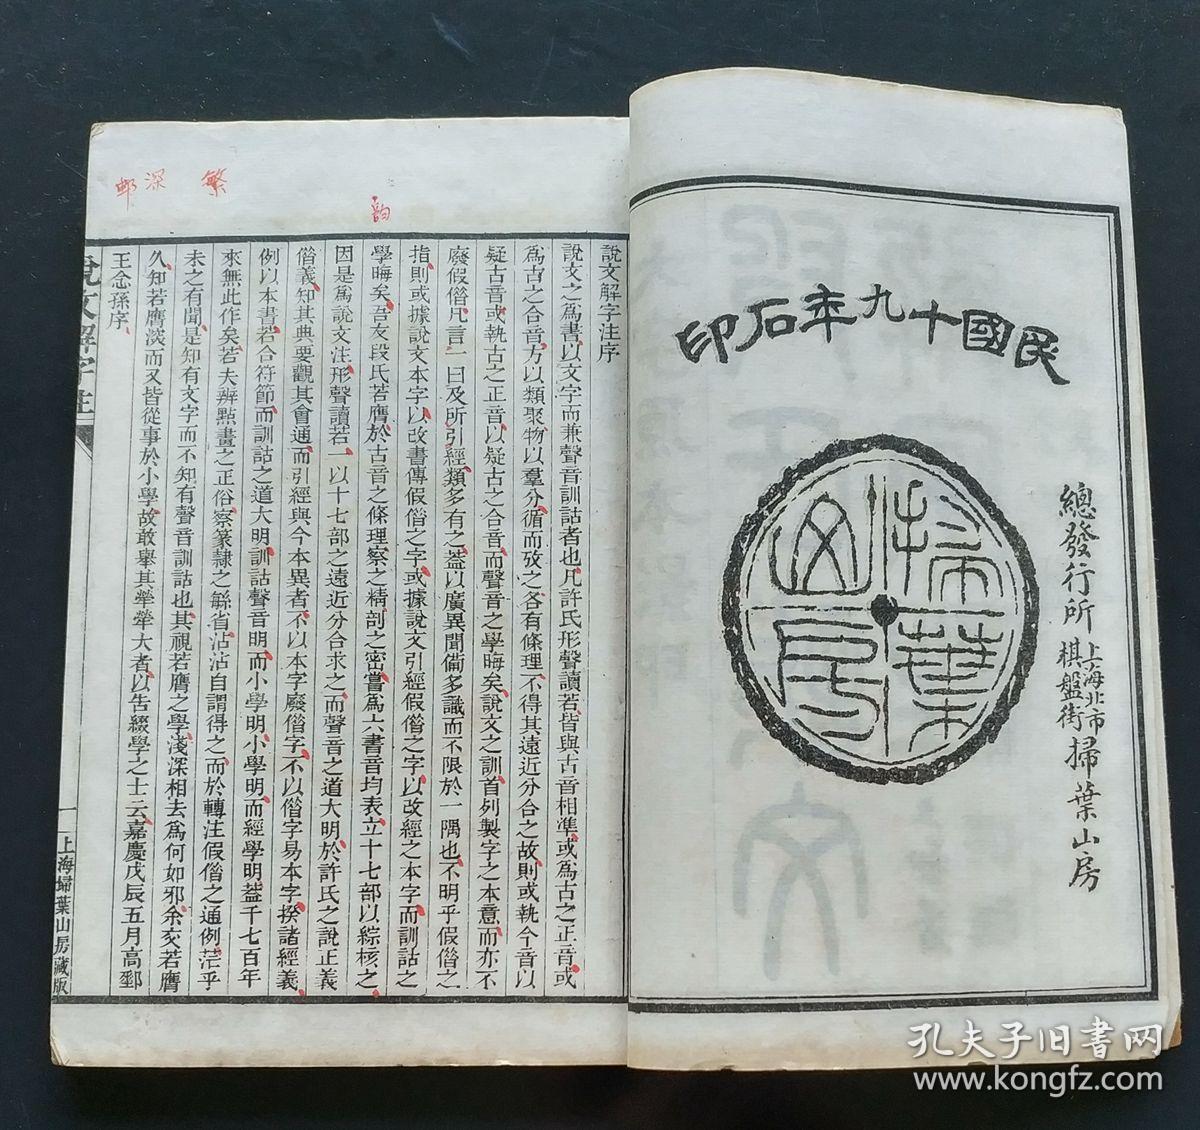 民國十九年石印
掃葉山房
總發行所
上海北市
棋盤街
掃葉山房
說文解字注序
說文之為書以文字而兼聲音訓詁者也凡許氏形聲讀若皆與古音相準或為古之正音或
為古之合音方以類聚物以羣分循而攷之各有條理不得其遠近分合之故則或執今音以
疑古音或執古之正音以疑古之合音而聲音之學晦矣說文之訓首列製字之本意而亦不
廢假借凡言一曰及所引經類多有之葢以廣異聞備多識而不限於一隅也不明乎假借之
指則或據說文本字以改書傳假借之字或據說文引經假借之字以改經之本字而訓詁之
學晦矣吾友段氏若膺於古音之條理察之精剖之密嘗為六書音均表立十七部以綜核之
因是為說文注形聲讀若一以十七部之遠近分合求之而聲音之道大明於許氏之說正義
借義知其典要觀其會通而引經與今本異者不以本字廢借字不以借字易本字揆諸經義
例以本書若合符節而訓詁之道大明訓詁聲音明而小學明小學明而經學明葢千七百年
來無此作矣若夫辨點畫之正俗察篆隸之緐省沾沾自謂得之而於轉注假借之通例茫乎
未之有聞是知有文字而不知有聲音訓詁也其視若膺之學淺深相去為何如邪余交若膺
久知若膺淺而又皆從事於小學故敢舉其犖犖大者以告綴學之士云嘉慶戊辰五月高郵
王念孫序
說文解字注
一
上海掃葉山房藏版
韵
繁
深
邮
孔夫子旧書网
www.kongfz.com